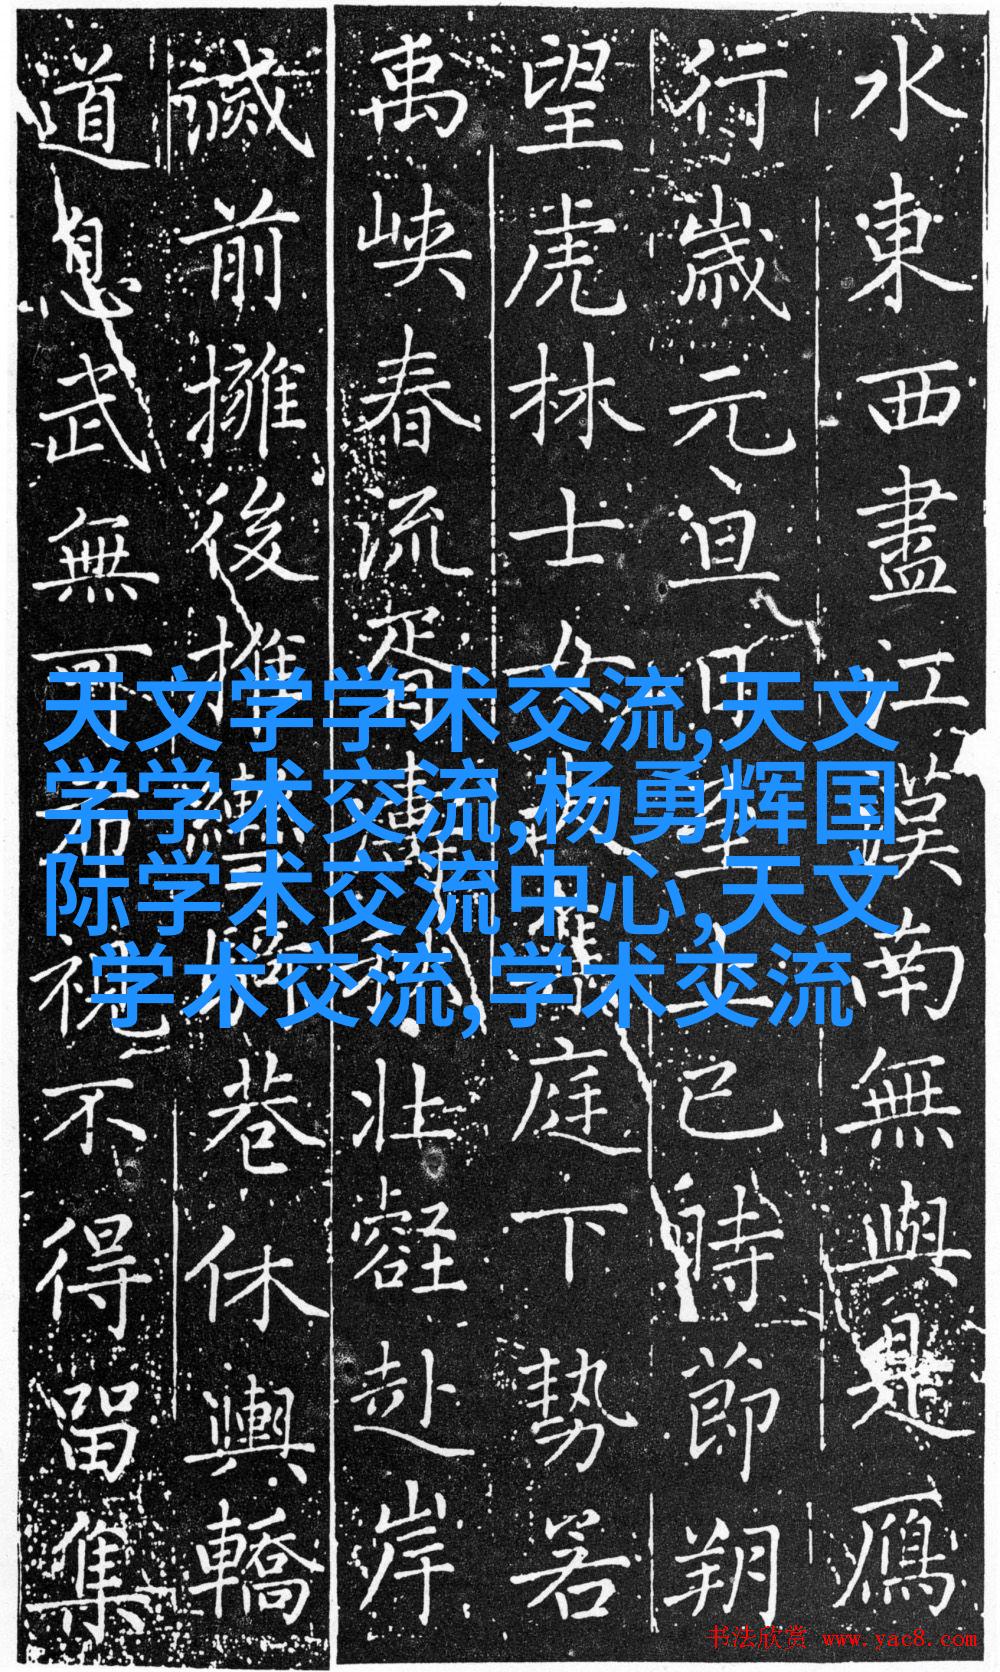 水東西盡江漢南無與是鴈
行歲元旦日至上巳時節朔
望虎林士女庭下勢若
禹峽春流胥濤秋壯壑赴岸
滅前擁後推巷休輿轎
道息武無所希視不得留隻
天文学学术交流,天文
学学术交流,杨勇辉国
际学术交流中心,天文
学术交流,学术交流
书法欣赏 www.yac8.com